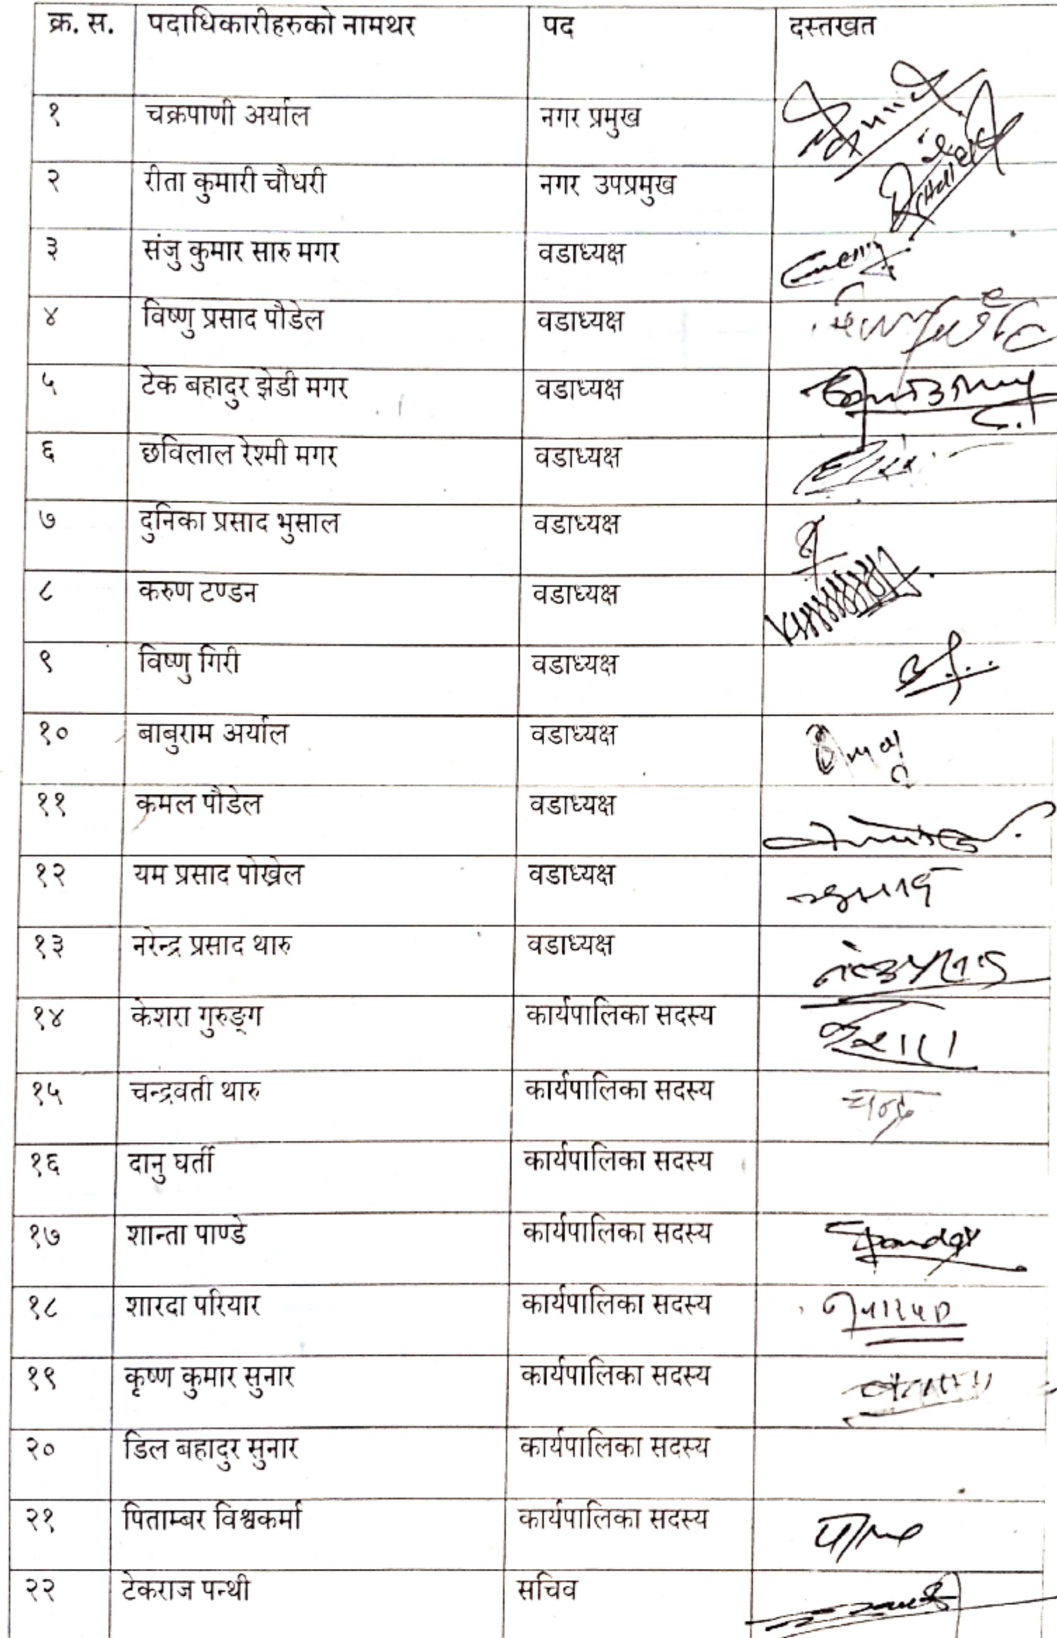 क्र. स. पदाधिकारीहरुको नामथर पद दस्तखत
१ चक्रपाणी अर्याल नगर प्रमुख
२ रीता कुमारी चौधरी नगर उपप्रमुख
३ संजु कुमार सारु मगर वडाध्यक्ष
४ विष्णु प्रसाद पौडेल वडाध्यक्ष
५ टेक बहादुर झेडी मगर वडाध्यक्ष
६ छविलाल रेश्मी मगर वडाध्यक्ष
७ दुनिका प्रसाद भुसाल वडाध्यक्ष
८ करुण टण्डन वडाध्यक्ष
९ विष्णु गिरी वडाध्यक्ष
१० बाबुराम अर्याल वडाध्यक्ष
११ कमल पौडेल वडाध्यक्ष
१२ यम प्रसाद पोख्रेल वडाध्यक्ष
१३ नरेन्द्र प्रसाद थारु वडाध्यक्ष
१४ केशरा गुरुङ्ग कार्यपालिका सदस्य
१५ चन्द्रवती थारु कार्यपालिका सदस्य चन्द्र
१६ दानु घर्ती कार्यपालिका सदस्य
१७ शान्ता पाण्डे कार्यपालिका सदस्य
१८ शारदा परियार कार्यपालिका सदस्य
१९ कृष्ण कुमार सुनार कार्यपालिका सदस्य
२० डिल बहादुर सुनार कार्यपालिका सदस्य
२१ पिताम्बर विश्वकर्मा कार्यपालिका सदस्य
२२ टेकराज पन्थी सचिव